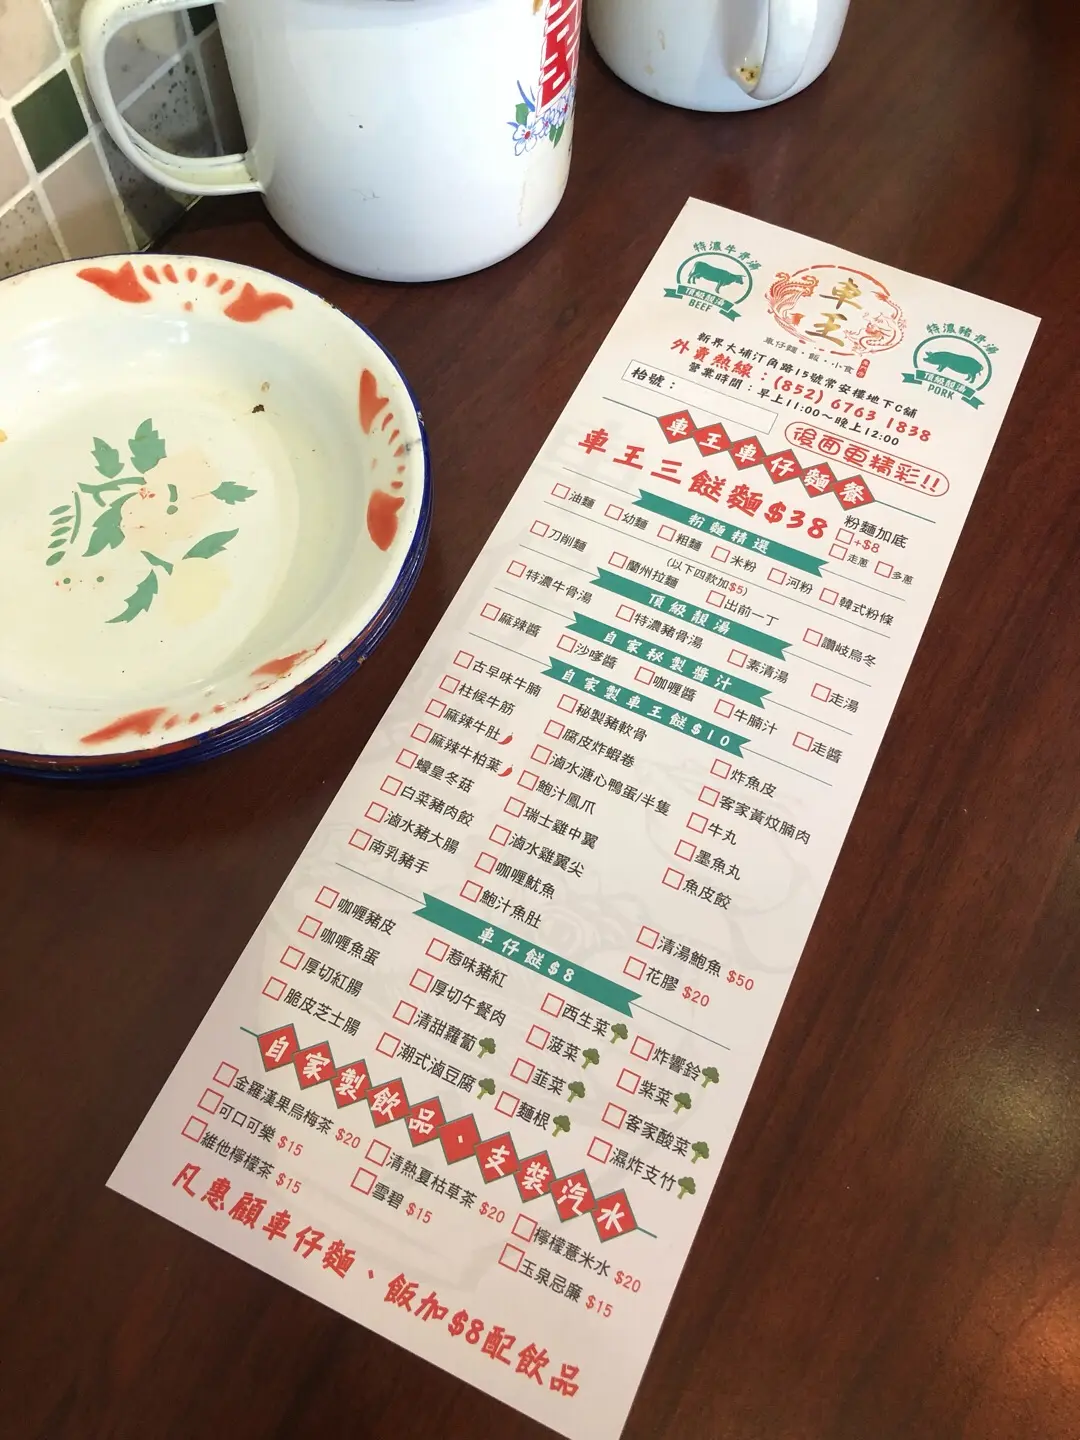 特濃牛骨湯
頂級靚湯
BEEF
車王
車仔麵・飯・小食
特濃豬骨湯
頂級靚湯
PORK
新界大埔汀角路15號常安樓地下C舖
外賣熱線：(852) 6763 1838
營業時間：早上11:00～晚上12:00
枱號：
後面更精彩!!
車王車仔麵餐
車王三餸麵$38
粉麵加底
+$8
走蔥 多蔥
粉麵精選
油麵 幼麵 粗麵 米粉 河粉 韓式粉條
(以下四款加$5)
刀削麵 蘭州拉麵 出前一丁 讚岐烏冬
頂級靚湯
特濃牛骨湯 特濃豬骨湯 素清湯 走湯
自家秘製醬汁
麻辣醬 沙嗲醬 咖喱醬 牛腩汁 走醬
自家製車王餸$10
古早味牛腩 秘製豬軟骨 炸魚皮
柱候牛筋 腐皮炸蝦卷 客家黃炆腩肉
麻辣牛肚 滷水溏心鴨蛋/半隻 牛丸
麻辣牛柏葉 鮑汁鳳爪 墨魚丸
蠔皇冬菇 瑞士雞中翼 魚皮餃
白菜豬肉餃 滷水雞翼尖
滷水豬大腸 咖喱魷魚 清湯鮑魚 $50
南乳豬手 鮑汁魚肚 花膠 $20
車仔餸$8
咖喱豬皮 惹味豬紅 西生菜 炸響鈴
咖喱魚蛋 厚切午餐肉 菠菜 紫菜
厚切紅腸 清甜蘿蔔 韮菜 客家酸菜
脆皮芝士腸 潮式滷豆腐 麵根 濕炸支竹
自家製飲品・支裝汽水
金羅漢果烏梅茶 $20 清熱夏枯草茶 $20 檸檬薏米水 $20
可口可樂 $15 雪碧 $15 玉泉忌廉 $15
維他檸檬茶 $15
凡惠顧車仔麵、飯加$8配飲品